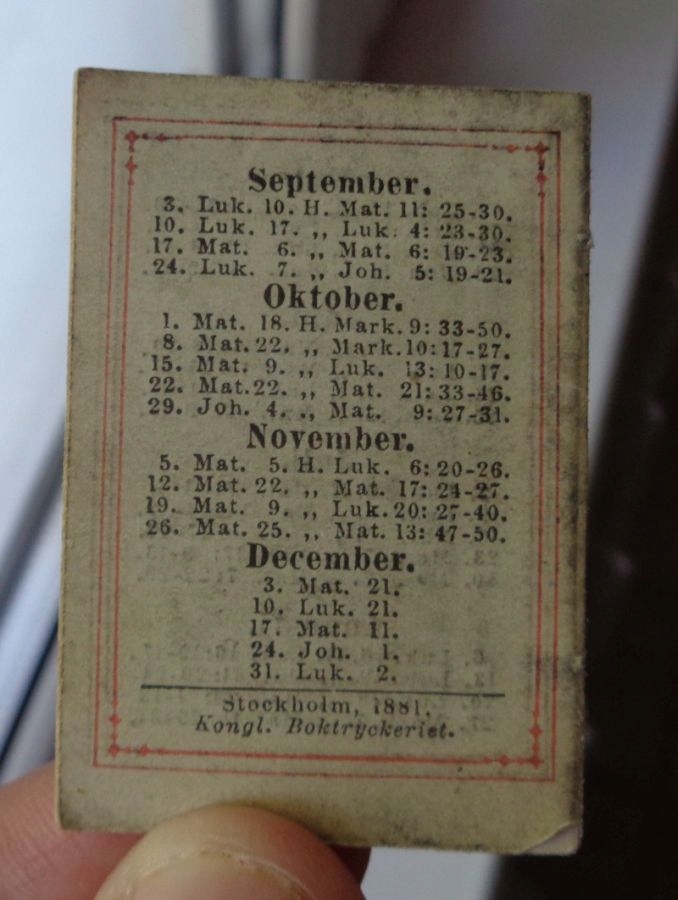 September.
3. Luk. 10. H. Mat. 11: 25-30.
10. Luk. 17. „ Luk. 4: 23-30.
17. Mat. 6. „ Mat. 6: 19-23.
24. Luk. 7. „ Joh. 5: 19-21.
Oktober.
1. Mat. 18. H. Mark. 9: 33-50.
8. Mat. 22. „ Mark. 10: 17-27.
15. Mat. 9. „ Luk. 13: 10-17.
22. Mat. 22. „ Mat. 21: 33-46.
29. Joh. 4. „ Mat. 9: 27-31.
November.
5. Mat. 5. H. Luk. 6: 20-26.
12. Mat. 22. „ Mat. 17: 24-27.
19. Mat. 9. „ Luk. 20: 27-40.
26. Mat. 25. „ Mat. 13: 47-50.
December.
3. Mat. 21.
10. Luk. 21.
17. Mat. 11.
24. Joh. 1.
31. Luk. 2.
Stockholm, 1881.
Kongl. Boktryckeriet.